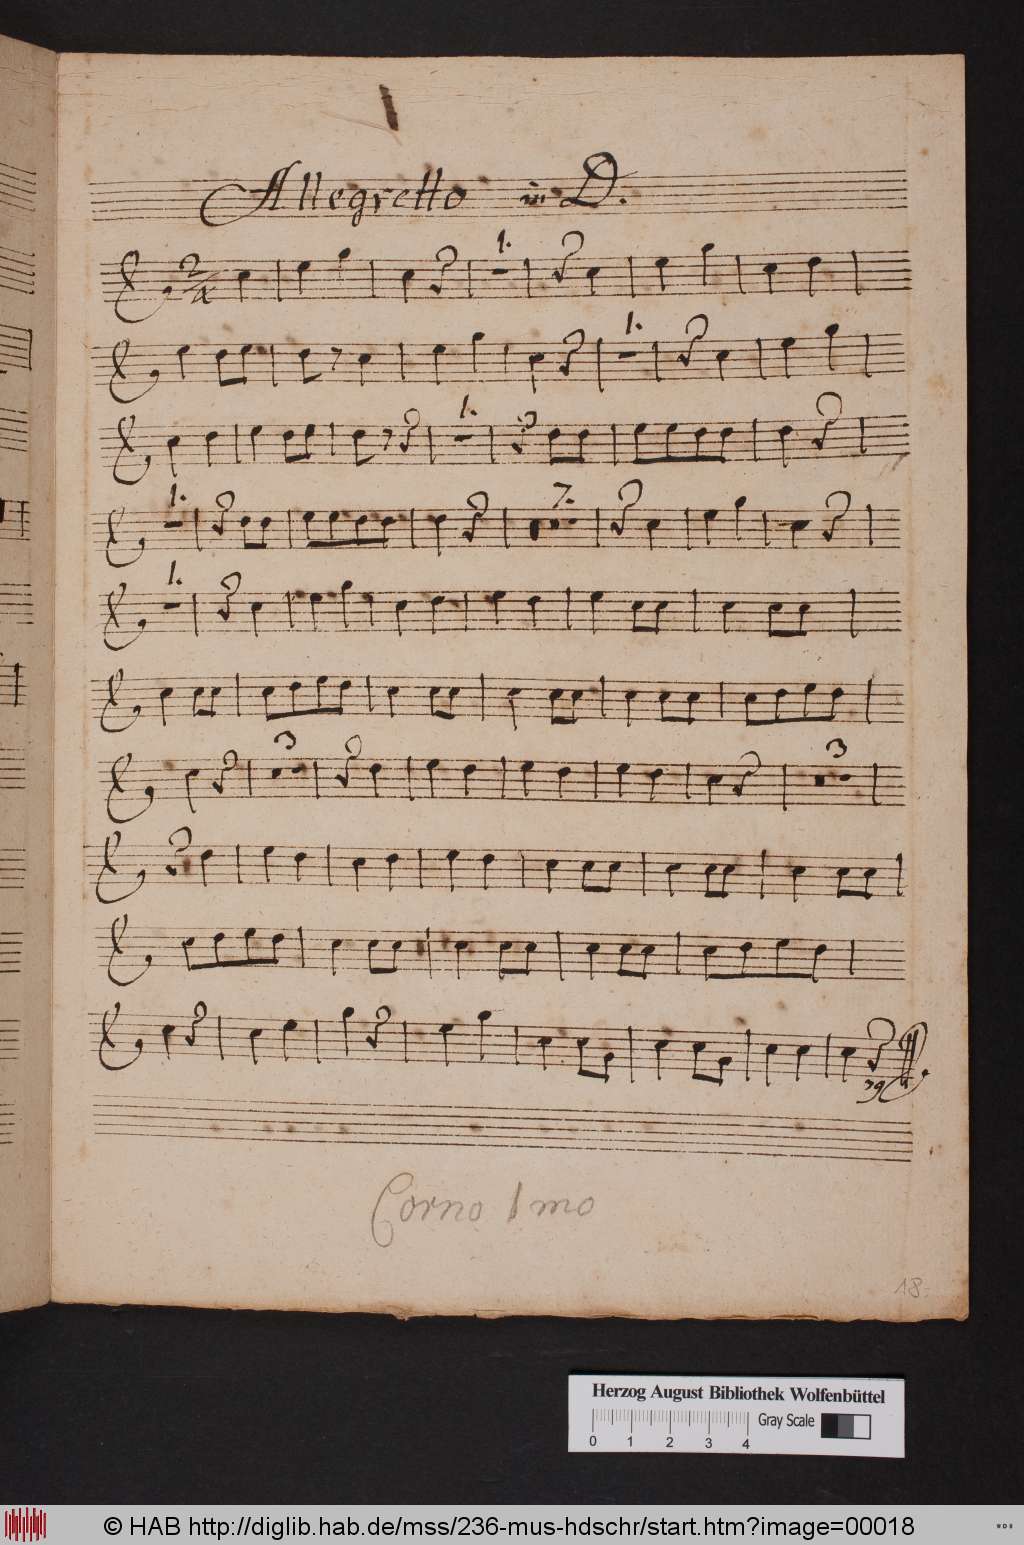 Allegretto in D.
2/4
1.
1.
1.
1.
7.
1.
3
3
39
Corno 1mo
18.
Herzog August Bibliothek Wolfenbüttel
Gray Scale
0 1 2 3 4
© HAB http://diglib.hab.de/mss/236-mus-hdschr/start.htm?image=00018